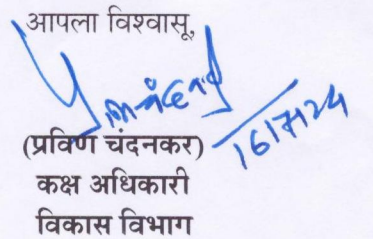 आपला विश्वासू,
16/7/24
(प्रविण चंदनकर)
कक्ष अधिकारी
विकास विभाग